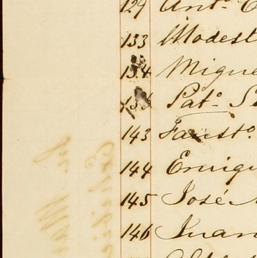 129 Anto
133 Modest
134 Migue
135 Pato
143 Fausto
144 Enriq
145 José
146 Juan